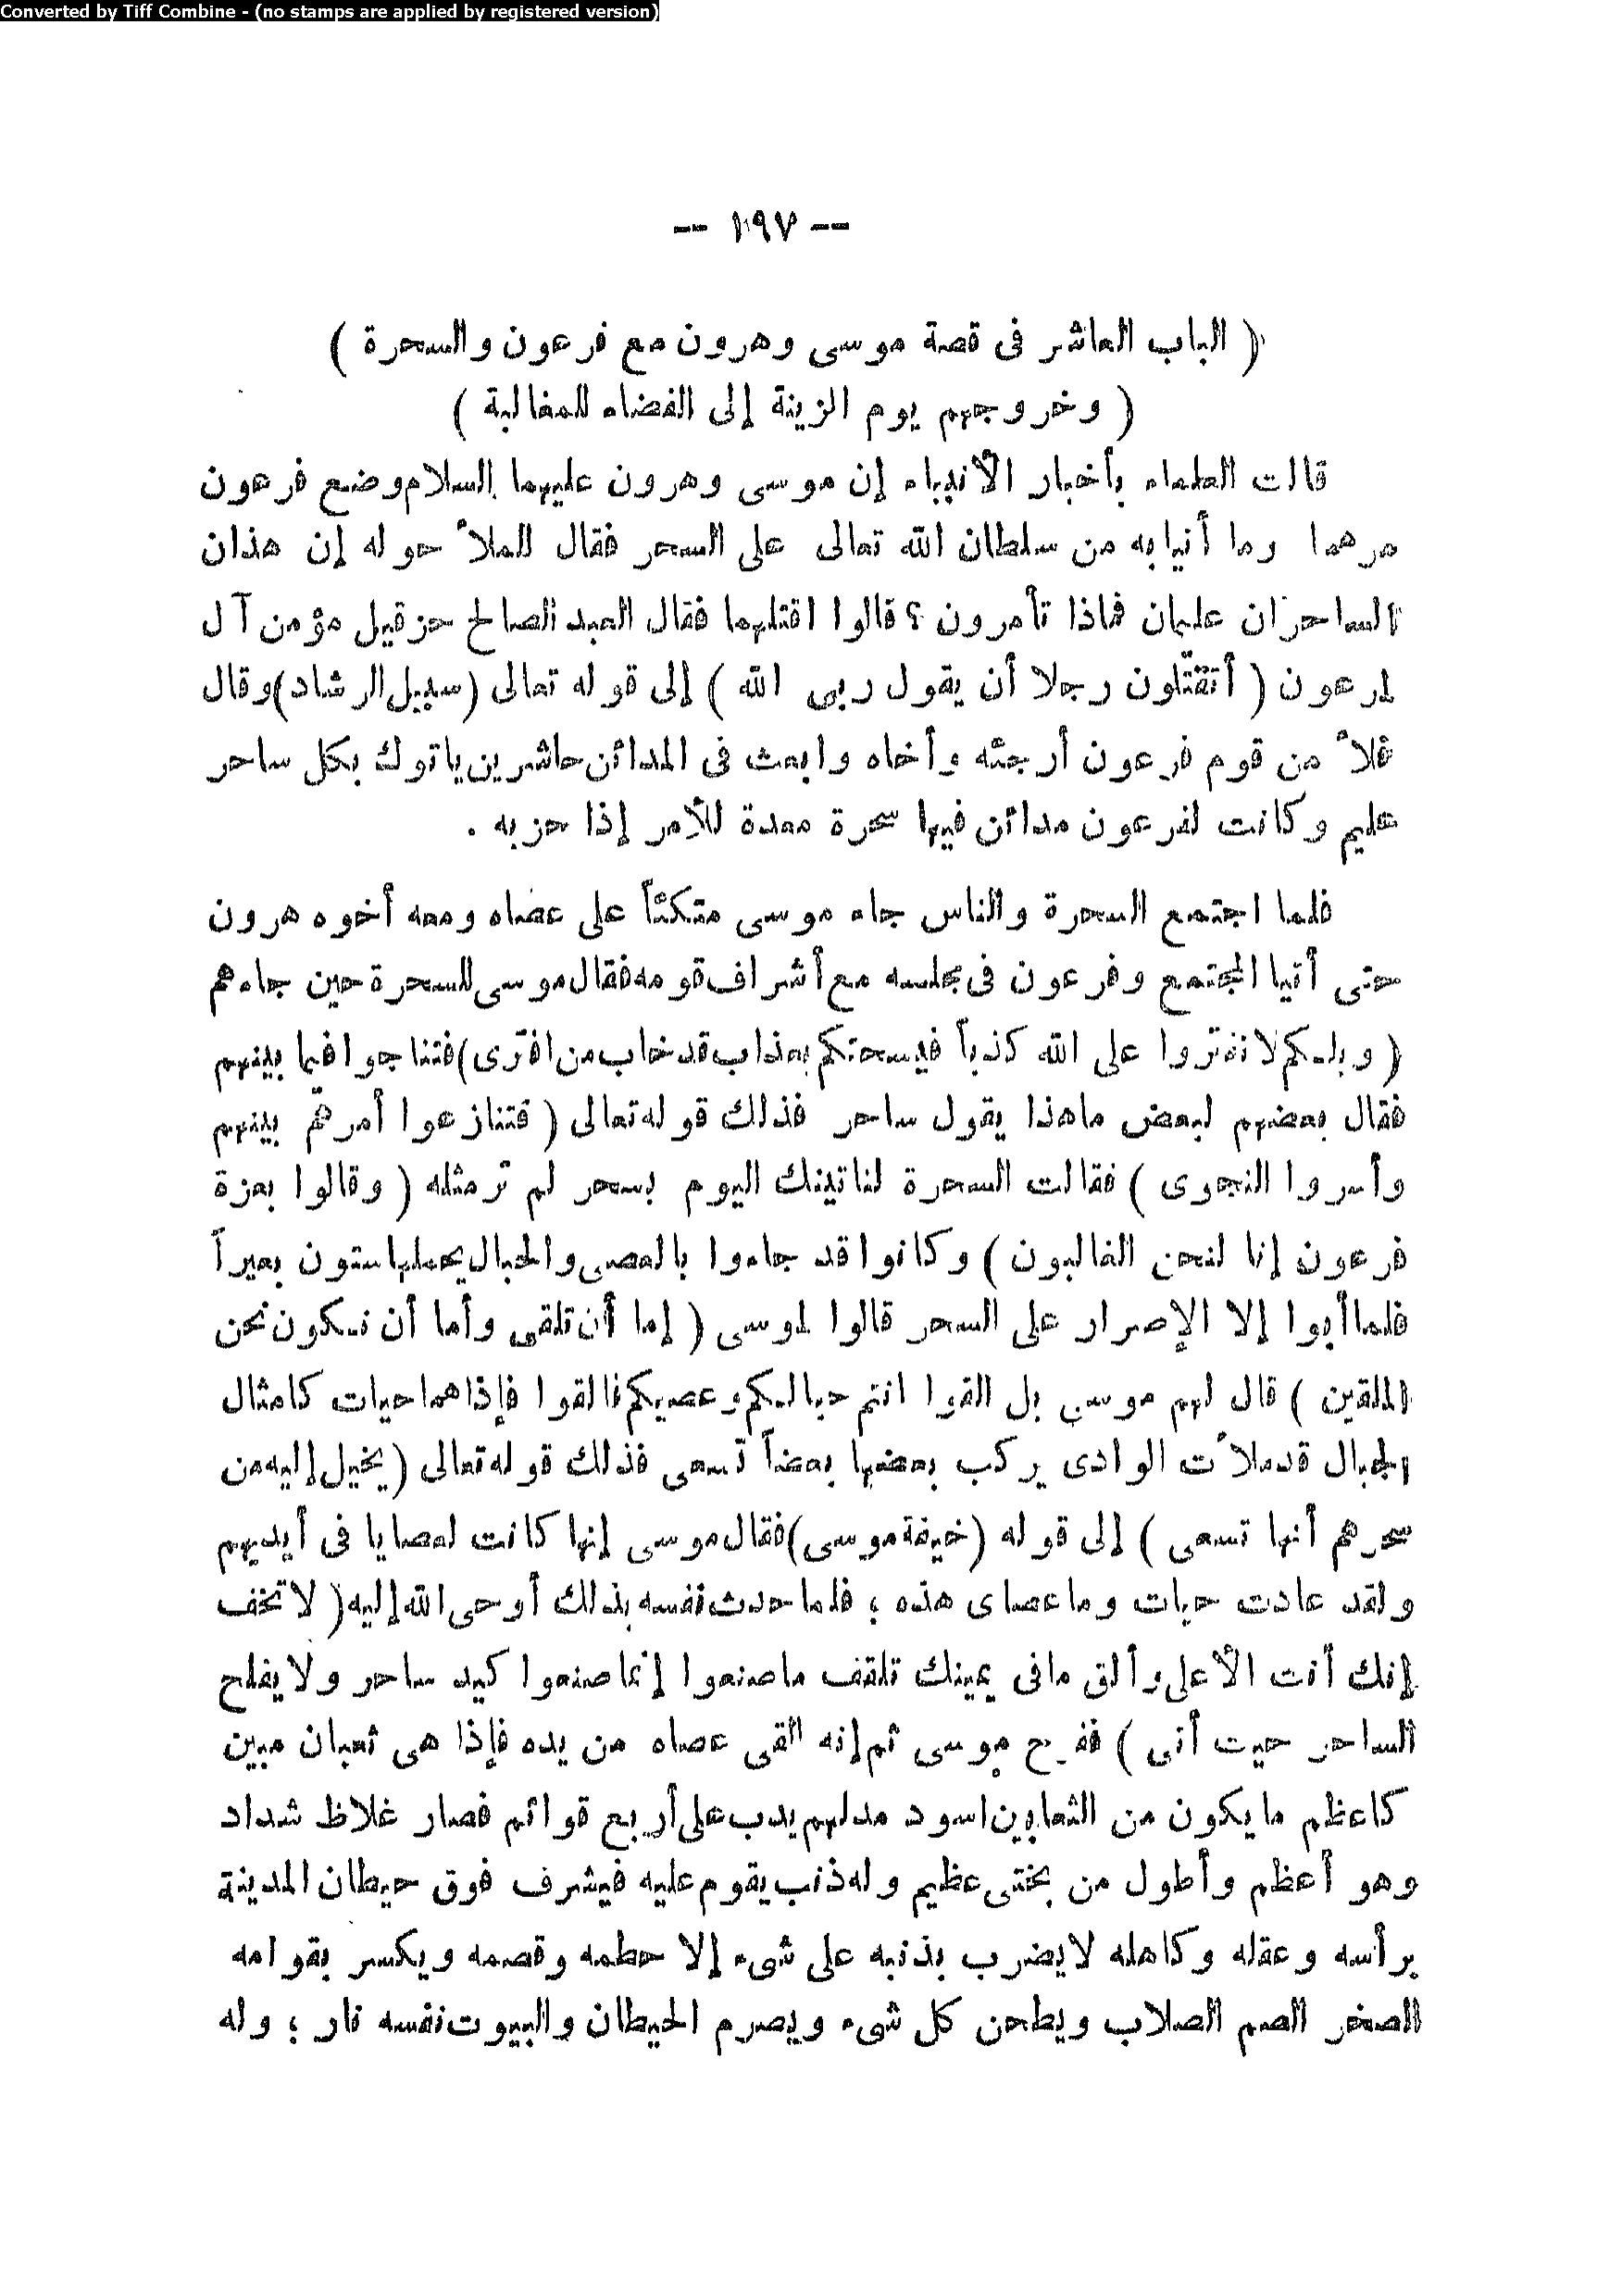 Converted by Tiff Combine - (no stamps are applied by registered version)
-- ١٩٧ --
( الباب العاشر فى قصة موسى وهرون مع فرعون والسحرة )
( وخروجهم يوم الزينة إلى الفضاء للمغالبة )
قالت العلماء بأخبار الأنبياء إن موسى وهرون عليهما السلام وضع فرعون
مرهما وما أنيابه من سلطان الله تعالى على السحر فقال للملأ حوله إن هذان
الساحران عليمان فماذا تأمرون ؟ قالوا اقتلهما فقال العبد الصالح حزقيل مؤمن آل
فرعون ( أتقتلون رجلا أن يقول ربى الله ) إلى قوله تعالى (سبيل الرشاد) وقال
فلأ من قوم فرعون أرجئه وأخاه وابعث فى المدائن حاشرين ياتوك بكل ساحر
عليم وكانت لفرعون مدائن فيها سحرة معدة للأمر إذا حزبه .
فلما اجتمع السحرة والناس جاء موسى متكئاً على عصاه ومعه أخوه هرون
حتى أتيا المجتمع وفرعون فى مجلسه مع أشراف قومه فقال موسى للسحرة حين جاءهم
( ويلكم لا تفتروا على الله كذباً فيسحتكم بعذاب قد خاب من افترى) فتناجوا فيما بينهم
فقال بعضهم لبعض ماهذا يقول ساحر فذلك قوله تعالى ( فتنازعوا أمرهم بينهم
وأسروا النجوى ) فقالت السحرة لناتينك اليوم بسحر لم تر مثله ( وقالوا بعزة
فرعون إنا لنحن الغالبون ) وكانوا قد جاءوا بالعصى والحبال يحملها ستون بعيراً
فلما أبوا إلا الإصرار على السحر قالوا لموسى ( إما أن تلقى وأما أن نكون نحن
الملقين ) قال لهم موسى بل القوا انتم حبالكم وعصيكم فالقوا فإذا هما حيات كامثال
الجبال قد ملأت الوادى يركب بعضها بعضاً تسعى فذلك قوله تعالى (يخيل إليه من
سحرهم أنها تسعى ) إلى قوله (خيفة موسى) فقال موسى إنها كانت لعصايا فى أيديهم
ولقد عادت حيات وما عصاى هذه ؛ فلما حدث نفسه بذلك أوحى الله إليه ( لا تخف
إنك أنت الأعلى وألق مافى يمينك تلقف ماصنعوا إنما صنعوا كيد ساحر ولا يفلح
الساحر حيت أتى ) ففرح موسى ثم إنه القى عصاه من يده فإذا هى ثعبان مبين
كاعظم ما يكون من الثعابين اسود مدلهم يدب على أربع قوائم فصار غلاظ شداد
وهو أعظم وأطول من بختى عظيم وله ذنب يقوم عليه فيشرف فوق حيطان المدينة
برأسه وعقله وكاهله لا يضرب بذنبه على شىء إلا حطمه وقصمه ويكسر بقوامه
الصخر الصم الصلاب ويطحن كل شىء ويصرم الحيطان والبيوت نفسه نار ؛ وله